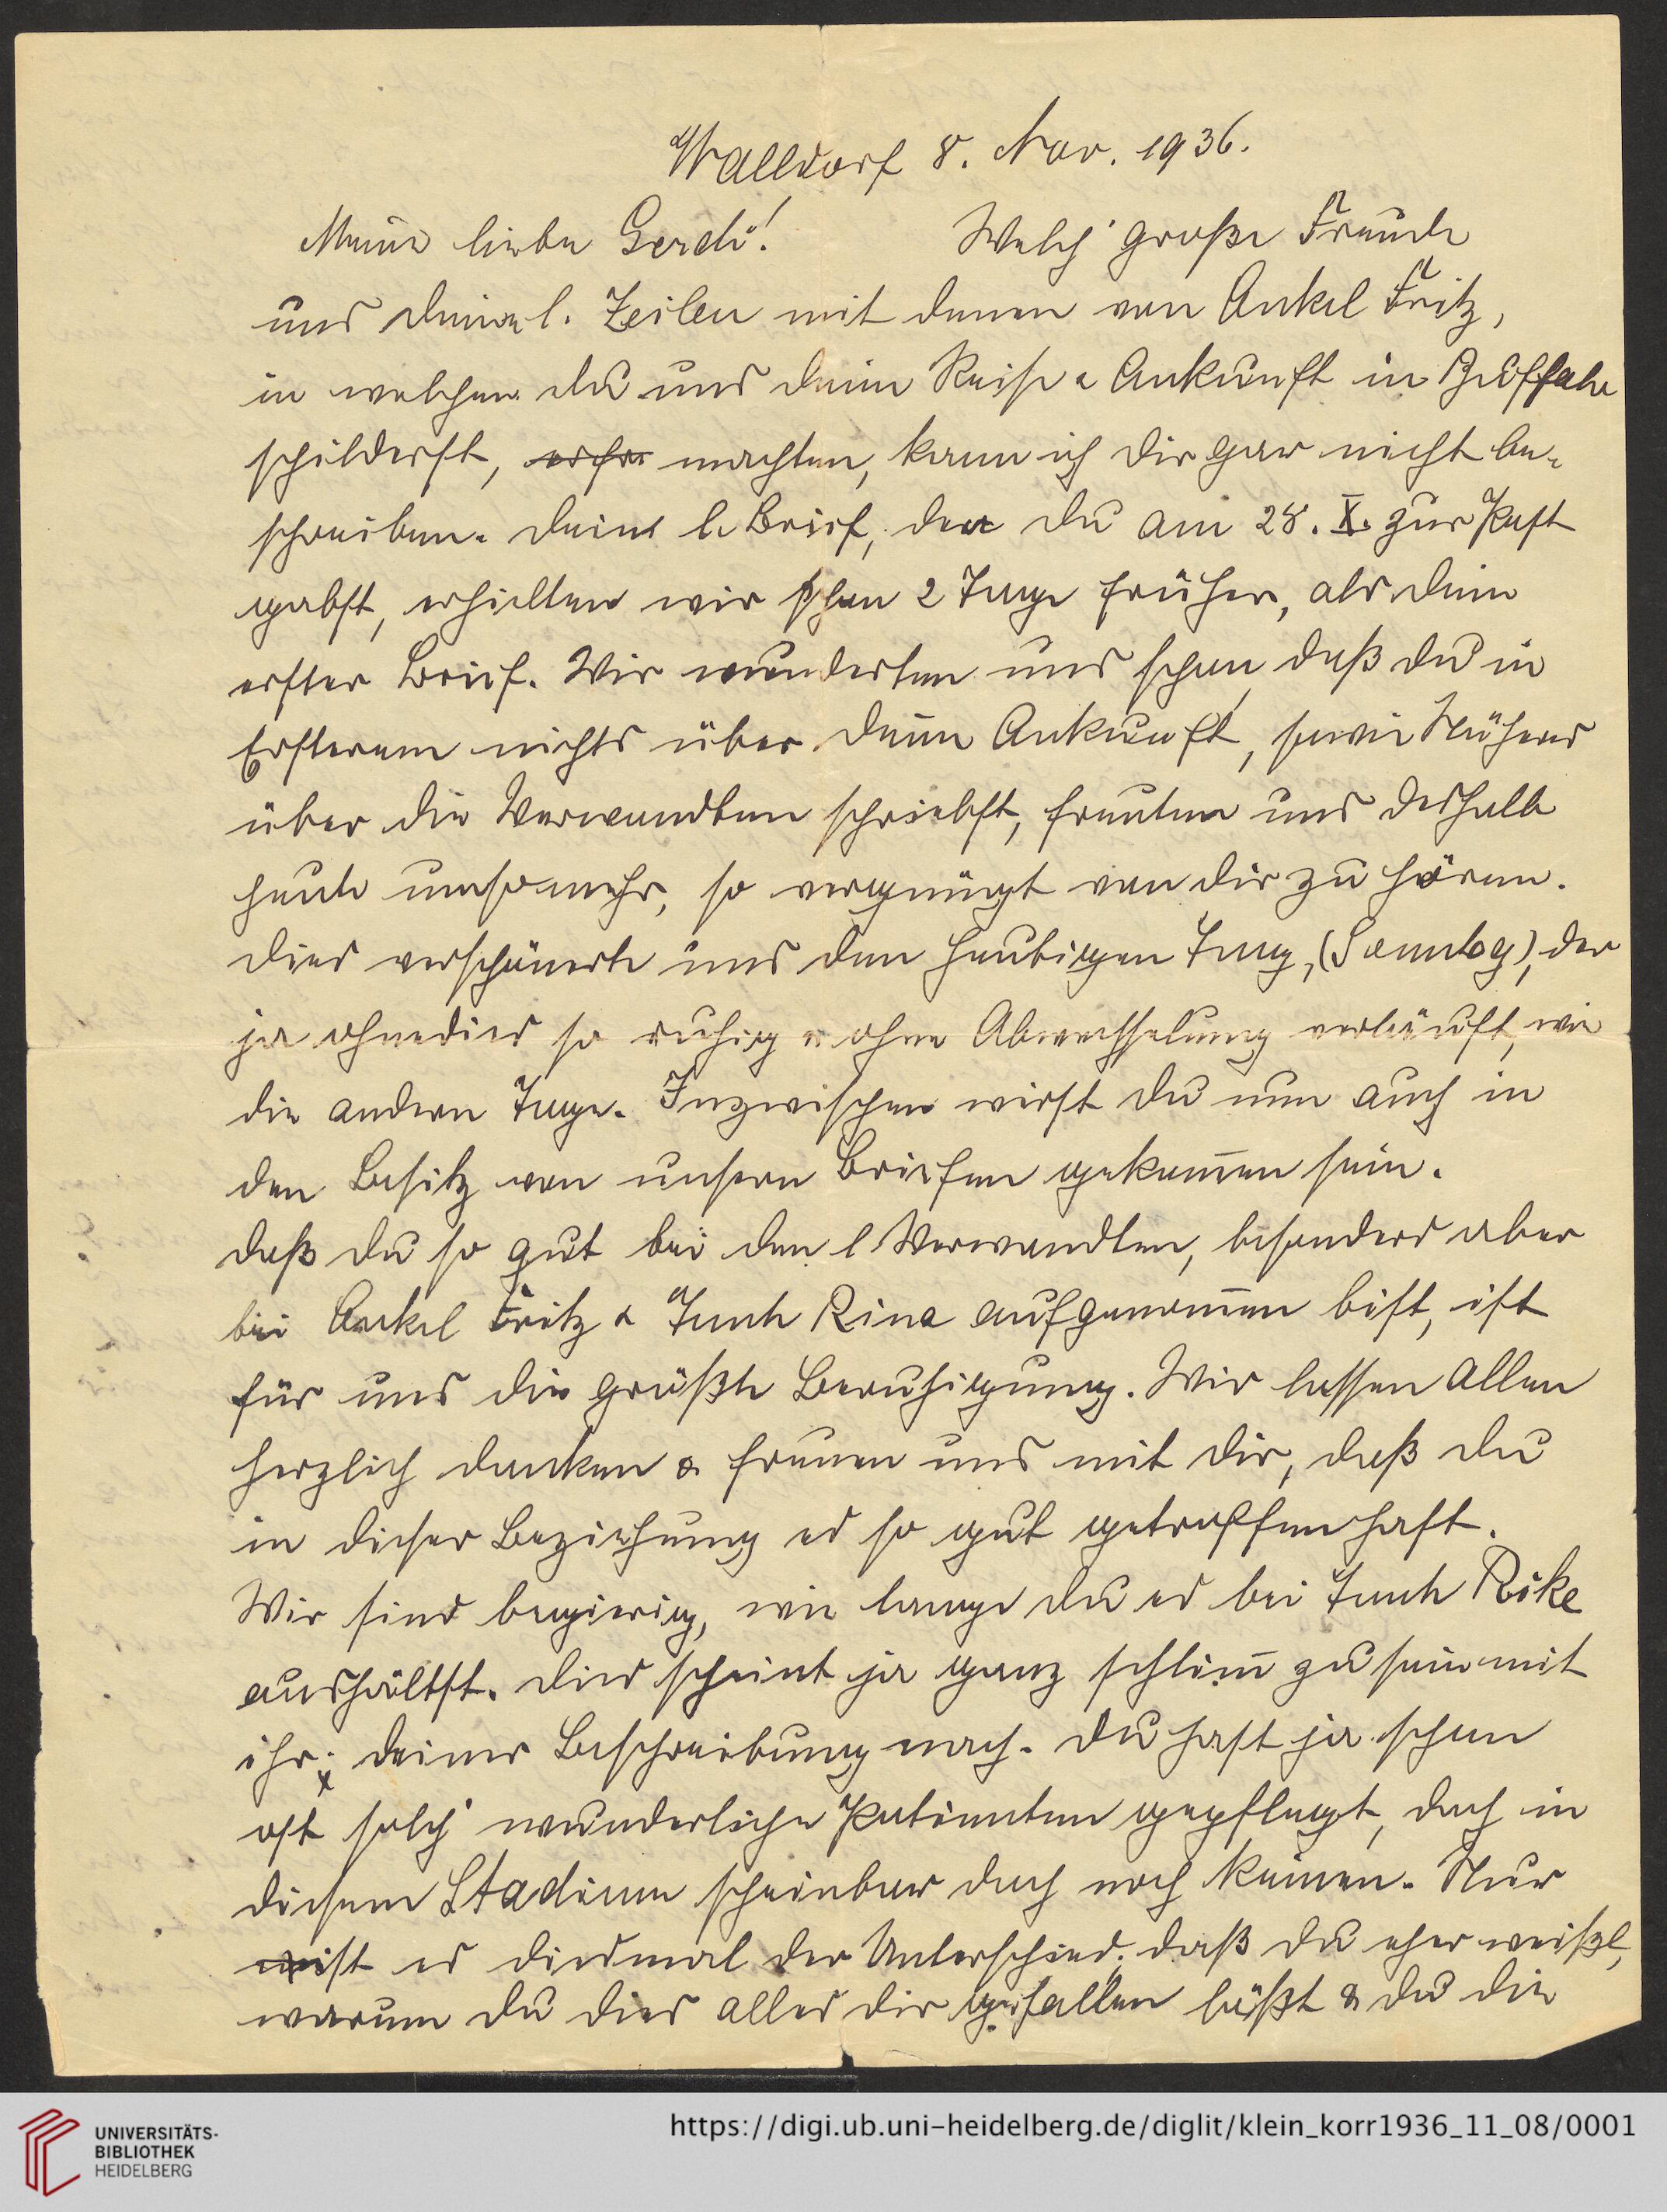 Walldorf 8. Nov. 1936.
Meine liebe Gerdi! Welch' große Freude
uns deine l. Zeilen mit denen von Onkel Fritz,
in welchen du uns deine Reise & Ankunft in Buffalo
schilderst, machten, kann ich dir gar nicht be-
schreiben. Deinen l. Brief, den du am 28. X. zur Post
gabst, erhielten wir schon 2 Tage früher, als dein
erster Brief. Wir wunderten uns schon, daß du in
Ersterem nichts über deine Ankunft, sowie Näheres
über die Verwandten schriebst, freuten uns deshalb
heute umsomehr, so vergnügt von dir zu hören.
Dies verschönerte uns den heutigen Tag, (Sonntag), der
ja ohnedies so ruhig u. ohne Abwechselung verläuft, wie
die andern Tage. Inzwischen wirst du nun auch in
den Besitz von unsern Briefen gekom̅en sein.
Daß du so gut bei den l. Verwandten, besonders aber
bei Onkel Fritz & Tante Rina aufgenom̅en bist, ist
für uns die größte Beruhigung. Wir lassen Allen
herzlich danken & freuen uns mit dir, daß du
in dieser Beziehung es so gut getroffen hast.
Wir sind begierig, wie lange du es bei Tante Rike
aushältst. Dies scheint ja ganz schlim̅ zu sein mit
ihr; deiner Beschreibung nach. Du hast ja schon
oft solch' wunderliche Patienten gepflegt, doch in
diesem Stadium scheinbar doch noch keinen. Nur
ist es diesmal der Unterschied, daß du eher weißt,
warum du dies alles dir gefallen läßt & du die
UNIVERSITÄTS-
BIBLIOTHEK
HEIDELBERG
https://digi.ub.uni-heidelberg.de/diglit/klein_korr1936_11_08/0001